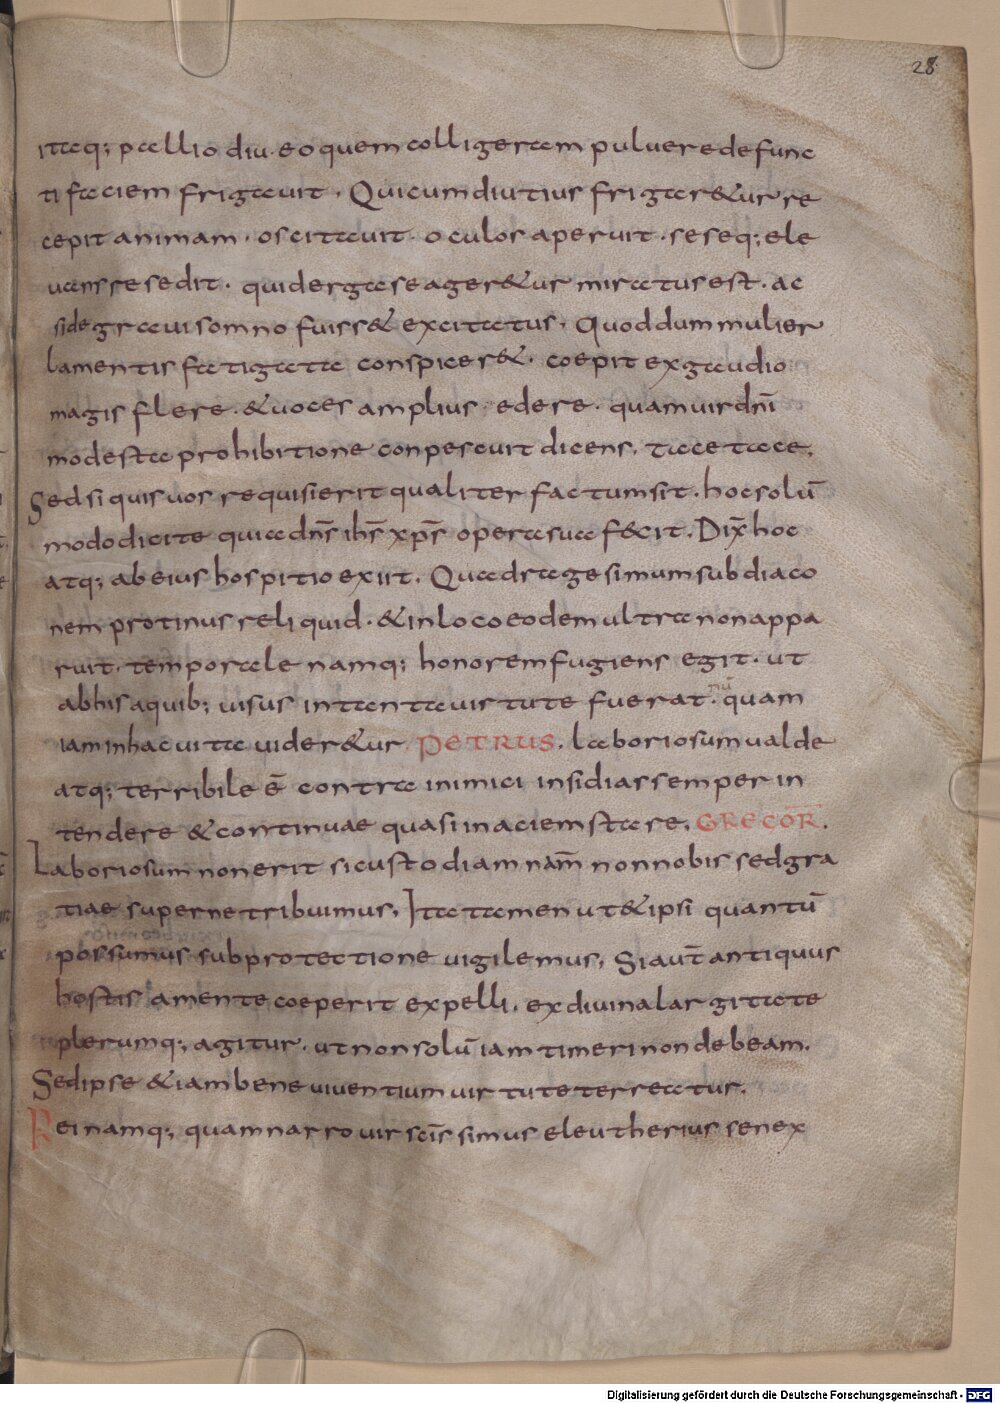 28
itaq; pallio diu. eo quem colligeraam pulueredefunc
ti faciem fricauit. Quicumdiutius frigaretur re
cepit animam. oscitauit. oculos aperuit. seseq; ele
uans resedit. quid erga se ageretur miratus est. ac
side graui somno fuisset excitatus. Quod dum mulier
lamentis fatigata conspiceret. coepit ex gaudio
magis flere. & uoces amplius edere. quam uir dñi
modesta prohibitione conpescuit dicens. tace tace.
Sed si quis uos requisierit qualiter factum sit. hoc solū
modo dicite quia dn̄s ih̄s xp̄s opera sua fecit. Dix̄ hoc
atq; ab eius hospitio exiit. Quadragesimum subdiaco
nem protinus reliquid. & in loco eodem ultra non appa
ruit. temporale namq; honorem fugiens egit. ut
ab his a quib; uisus in tanta uirtute fuerat. nū quam
iam in hac uita uideretur PETRUS. Laboriosum ualde
atq; terribile ē contra inimici insidias semper in
tendere & continuae quasi in aciem stare. GREGOR̄.
Laboriosum non erit si custodiam nām̄ non nobis sed gra
tiae superne tribuimus. Ita tamen ut & ipsi quantū
possumus sub protectione uigilemus. Si aut̄ antiquus
hostis a mente coeperit expelli. ex diuina largitate
plerumq; agitur. ut non solū iam timeri non debeam.
Sed ipse & iam bene uiuentium uirtute terreatur.
Rei namq; quam narro uir sc̄is simus eleutherius senex
Digitalisierung gefördert durch die Deutsche Forschungsgemeinschaft - DFG